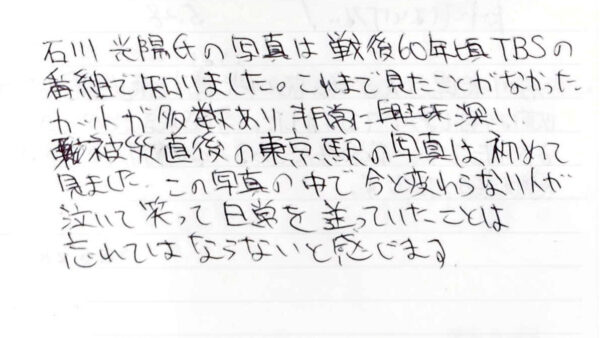 石川光陽氏の写真は戦後60年頃TBSの
番組で知りました。これまで見たことがなかった
カットが多数あり非常に興味深い
被災直後の東京駅の写真は初めて
見ました。この写真の中で今と変わらない人が
泣いて笑って日常を送っていたことは
忘れてはならないと感じます